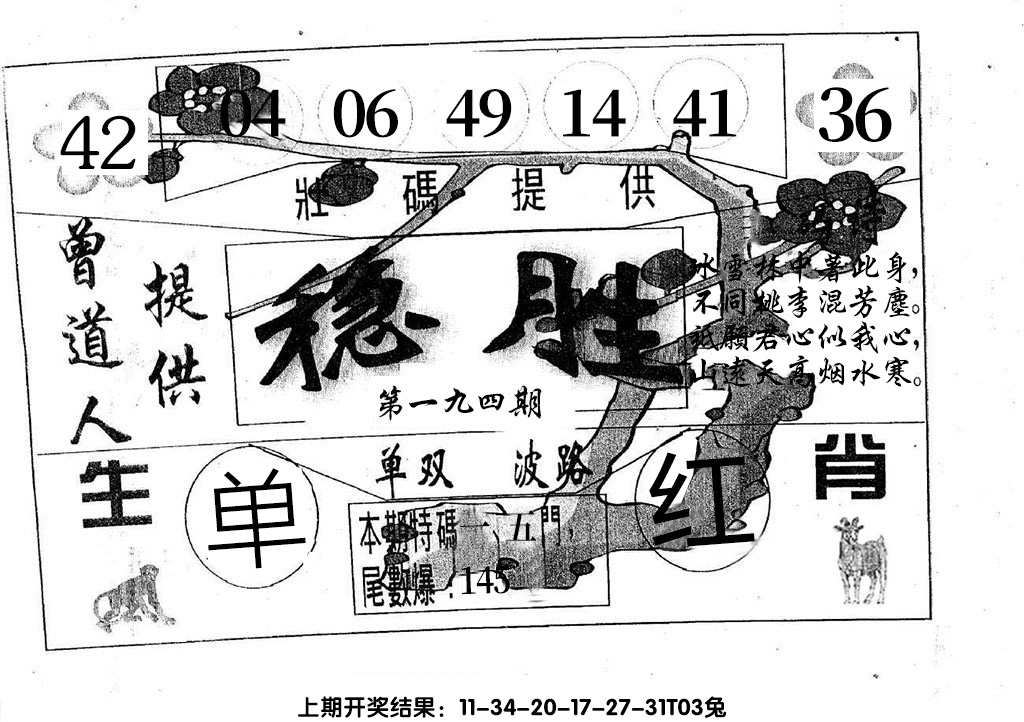 42 04 06 49 14 41 36
壯碼提供
曾道人
提供
稳胜
第一九四期
冰雪林中著此身，
不同桃李混芳塵。
祗願若心似我心，
山遠天高烟水寒。
单双 波路
生肖
单
红
本期特碼一、五門，
尾數爆：145
上期开奖结果：11-34-20-17-27-31T03兔